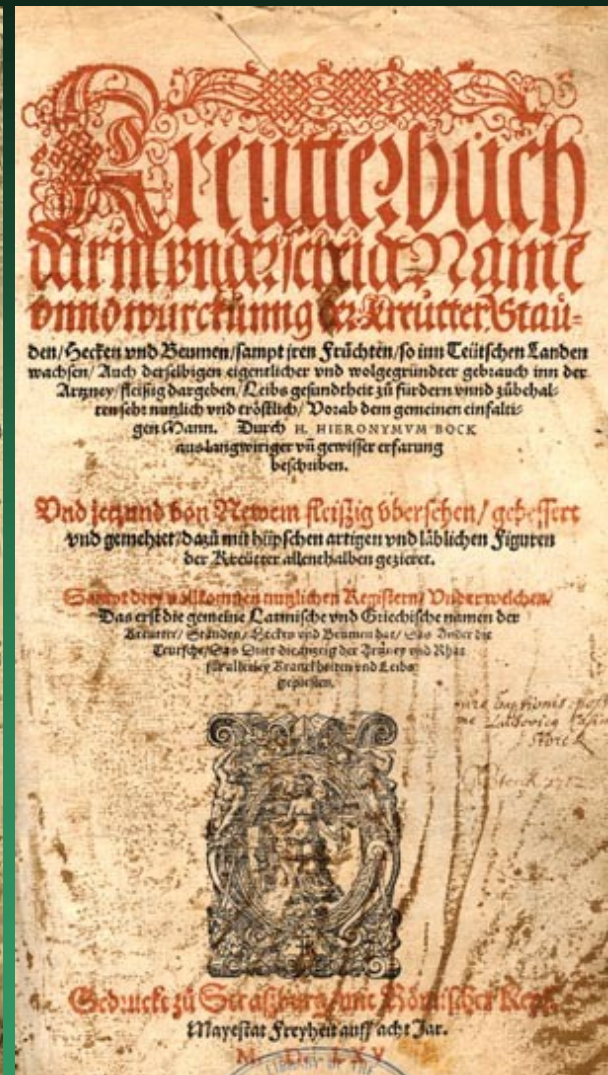 Kreütterbuch
darin vnderscheid Namẽ
vnnd würckung der Kreütter / Stau-
den / Hecken vnd Beumen / sampt jren Früchten / so inn Teütschen Landen
wachsen / Auch derselbigen eigentlicher vnd wolgegründter gebrauch inn der
Artzney / fleißig dargeben / Leibs gesundtheit zů fürdern vnnd zůbehal-
ten sehr nutzlich vnd tröstlich / Vorab dem gemeinen einfalti-
gen Mann. Durch H. HIERONYMVM BOCK
aus langwiriger vñ gewisser erfarung
beschriben.
Vnd jetzund von Newem fleißig übersehen / gebessert
vnd gemehret / dazů mit hüpschen artigen vnd läblichen Figuren
der Kreütter allenthalben gezieret.
Sampt drey vollkomnen nutzlichen Registern / Vnder welchen /
Das erst die gemeine Latinische vnd Griechische namen der
Kreutter / Stauden / Hecken vnd Beumen hat / Das Ander die
Teutsche / Das Dritt die anzeig der Artzney vnd Rhat
für allerley Kranckheiten vnd Leibs
gepresten.
Storck
1782
Gedruckt zů Straßburg / mit Römischer Key.
Mayestat Freyheit auff acht Jar.
M. D. LXV
LIBRARY OF THE